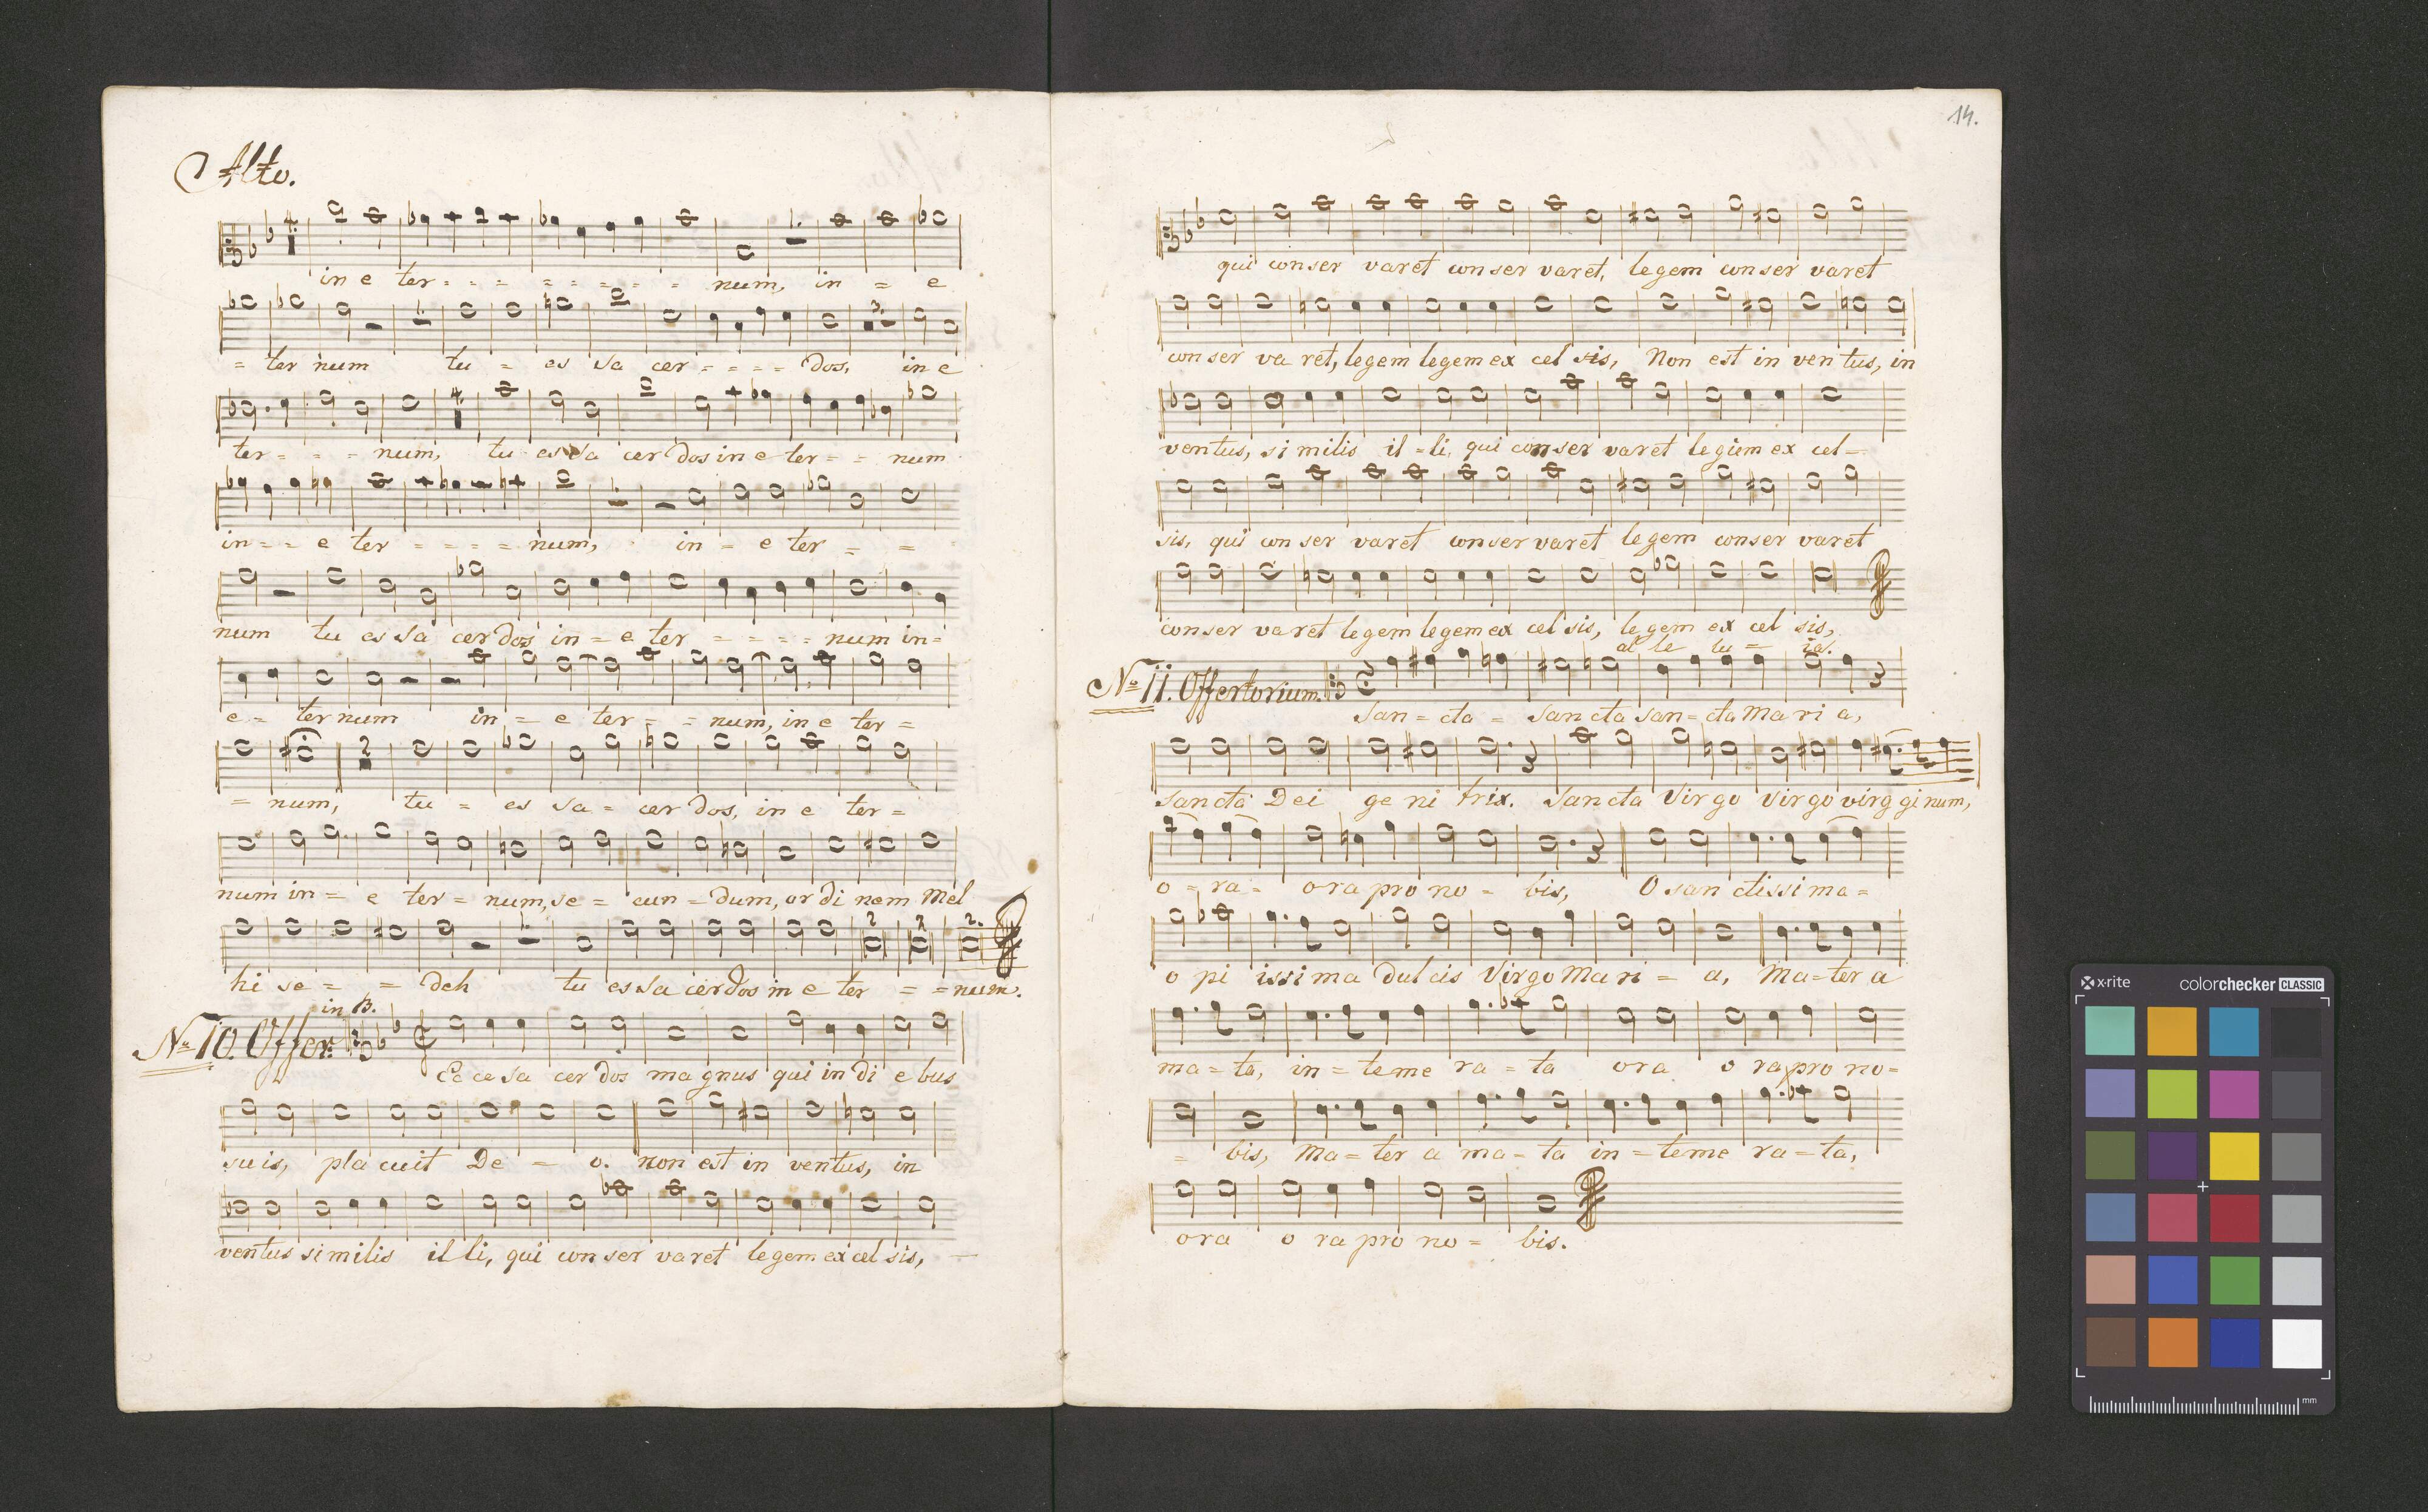 Alto.
in e ter - - - - - - - - num, in = e
= ter num tu = es sa cer = = = = dos, in e
ter = = = num, tu es sa cer dos in e ter = = num
in = = e ter = = = = num, in = e ter = =
num tu es sa cer dos in = e ter = = = = num in =
e = ter num in = e ter = = num, in e ter =
= num, tu = es sa = cer dos, in e ter =
num in = e ter = num, se = cun = dum, or di nem Mel
hi se = = deh tu es sa cer dos in e ter = = num.
in B.
No 10. Offer:
Ec ce sa cer dos ma gnus qui in di e bus
suis, pla cuit De = o. non est in ventus, in
ventus si milis il li, qui con ser varet legem ex cel sis,
14.
qui conser varet con ser varet, legem con ser varet
con ser va ret, legem legem ex cel sis, Non est in ven tus, in
ventus, si milis il = li, qui conser varet legem ex cel -
sis, qui con ser varet conser varet legem conser varet
conser varet legem legem ex cel sis, legem ex cel sis,
al le lu = ia.
No 11. Offertorium.
San = cta = Sancta san = cta Mari a,
Sancta Dei ge ni trix. Sancta Virgo Virgo virg ginum,
o = ra = ora pro no = bis, O san ctissi ma =
o pi issi ma dulcis Virgo Mari = a, Ma = ter a
ma = ta, in = teme ra = ta ora o ra pro no =
= bis, Ma = ter a ma = ta in = teme ra = ta,
ora o ra pro no = bis.
x-rite
colorchecker CLASSIC
mm